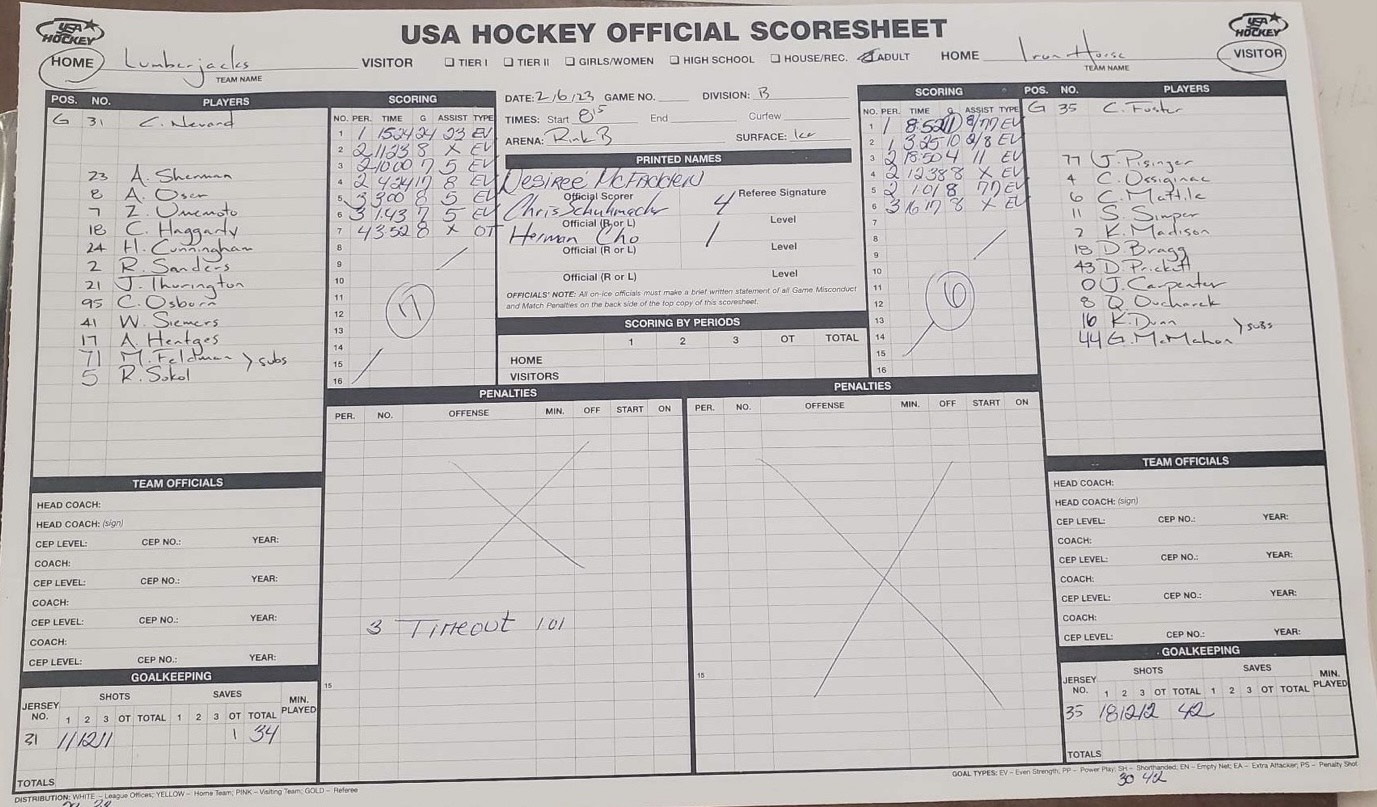 USA HOCKEY OFFICIAL SCORESHEET
USA HOCKEY
USA HOCKEY
HOME Lumberjacks VISITOR ☐ TIER I ☐ TIER II ☐ GIRLS/WOMEN ☐ HIGH SCHOOL ☐ HOUSE/REC. ☑ ADULT HOME Iron Horse VISITOR
TEAM NAME
TEAM NAME
POS. NO. PLAYERS
G 31 C. Nevard
23 A. Sherman
8 A. Osen
7 Z. Umemoto
18 C. Haggarty
24 H. Cunningham
2 R. Sanders
21 J. Thurington
95 C. Osborn
41 W. Siemers
17 A. Hentges
71 M. Feldman > subs
5 R. Sokol
SCORING
NO. PER. TIME G ASSIST TYPE
1 1 1524 24 23 EV
2 2 1123 8 X EV
3 2 1000 7 5 EV
4 2 424 17 8 EV
5 3 300 8 5 EV
6 3 1.43 7 5 EV
7 4 3528 X OT
8
9
10
11
12
13
14
15
16
7
DATE: 2/6/23 GAME NO. DIVISION: B
TIMES: Start 8:15 End Curfew
ARENA: Rink B SURFACE: Ice
PRINTED NAMES
Desiree McFadden
Official Scorer Referee Signature
Chris Schuhmachr 4
Official (R or L) Level
Herman Cho 1
Official (R or L) Level
Official (R or L) Level
OFFICIALS' NOTE: All on-ice officials must make a brief written statement of all Game Misconduct
and Match Penalties on the back side of the top copy of this scoresheet.
SCORING BY PERIODS
1 2 3 OT TOTAL
HOME
VISITORS
SCORING
NO. PER. TIME G ASSIST TYPE
1 1 8:52 11 8/77 EV
2 1 3:25 10 2/8 EV
3 2 18:50 4 11 EV
4 2 1238 8 X EV
5 2 101 8 77 EV
6 3 1617 8 X EV
7
8
9
10
11
12
13
14
15
16
6
POS. NO. PLAYERS
G 35 C. Foster
77 J. Pisinger
4 C. Ossignac
6 C. Mattile
11 S. Simper
2 K. Madison
18 D. Bragg
43 D. Prickett
0 J. Carpenter
8 D. Ovcharek
16 K. Dunn > subs
44 G. McMahon
PENALTIES
PER. NO. OFFENSE MIN. OFF START ON
3 Timeout 101
15
PENALTIES
PER. NO. OFFENSE MIN. OFF START ON
15
TEAM OFFICIALS
HEAD COACH:
HEAD COACH: (sign)
CEP LEVEL: CEP NO.: YEAR:
COACH:
CEP LEVEL: CEP NO.: YEAR:
COACH:
CEP LEVEL: CEP NO.: YEAR:
COACH:
CEP LEVEL: CEP NO.: YEAR:
GOALKEEPING
JERSEY NO. SHOTS SAVES MIN. PLAYED
1 2 3 OT TOTAL 1 2 3 OT TOTAL
31 11 12 11 1 34
TOTALS
TEAM OFFICIALS
HEAD COACH:
HEAD COACH: (sign)
CEP LEVEL: CEP NO.: YEAR:
COACH:
CEP LEVEL: CEP NO.: YEAR:
COACH:
CEP LEVEL: CEP NO.: YEAR:
COACH:
CEP LEVEL: CEP NO.: YEAR:
GOALKEEPING
JERSEY NO. SHOTS SAVES MIN. PLAYED
1 2 3 OT TOTAL 1 2 3 OT TOTAL
35 18 12 12 42
TOTALS
GOAL TYPES: EV – Even Strength, PP – Power Play, SH – Shorthanded, EN – Empty Net, EA – Extra Attacker, PS – Penalty Shot
30 42
DISTRIBUTION: WHITE – League Offices; YELLOW – Home Team; PINK – Visiting Team; GOLD – Referee